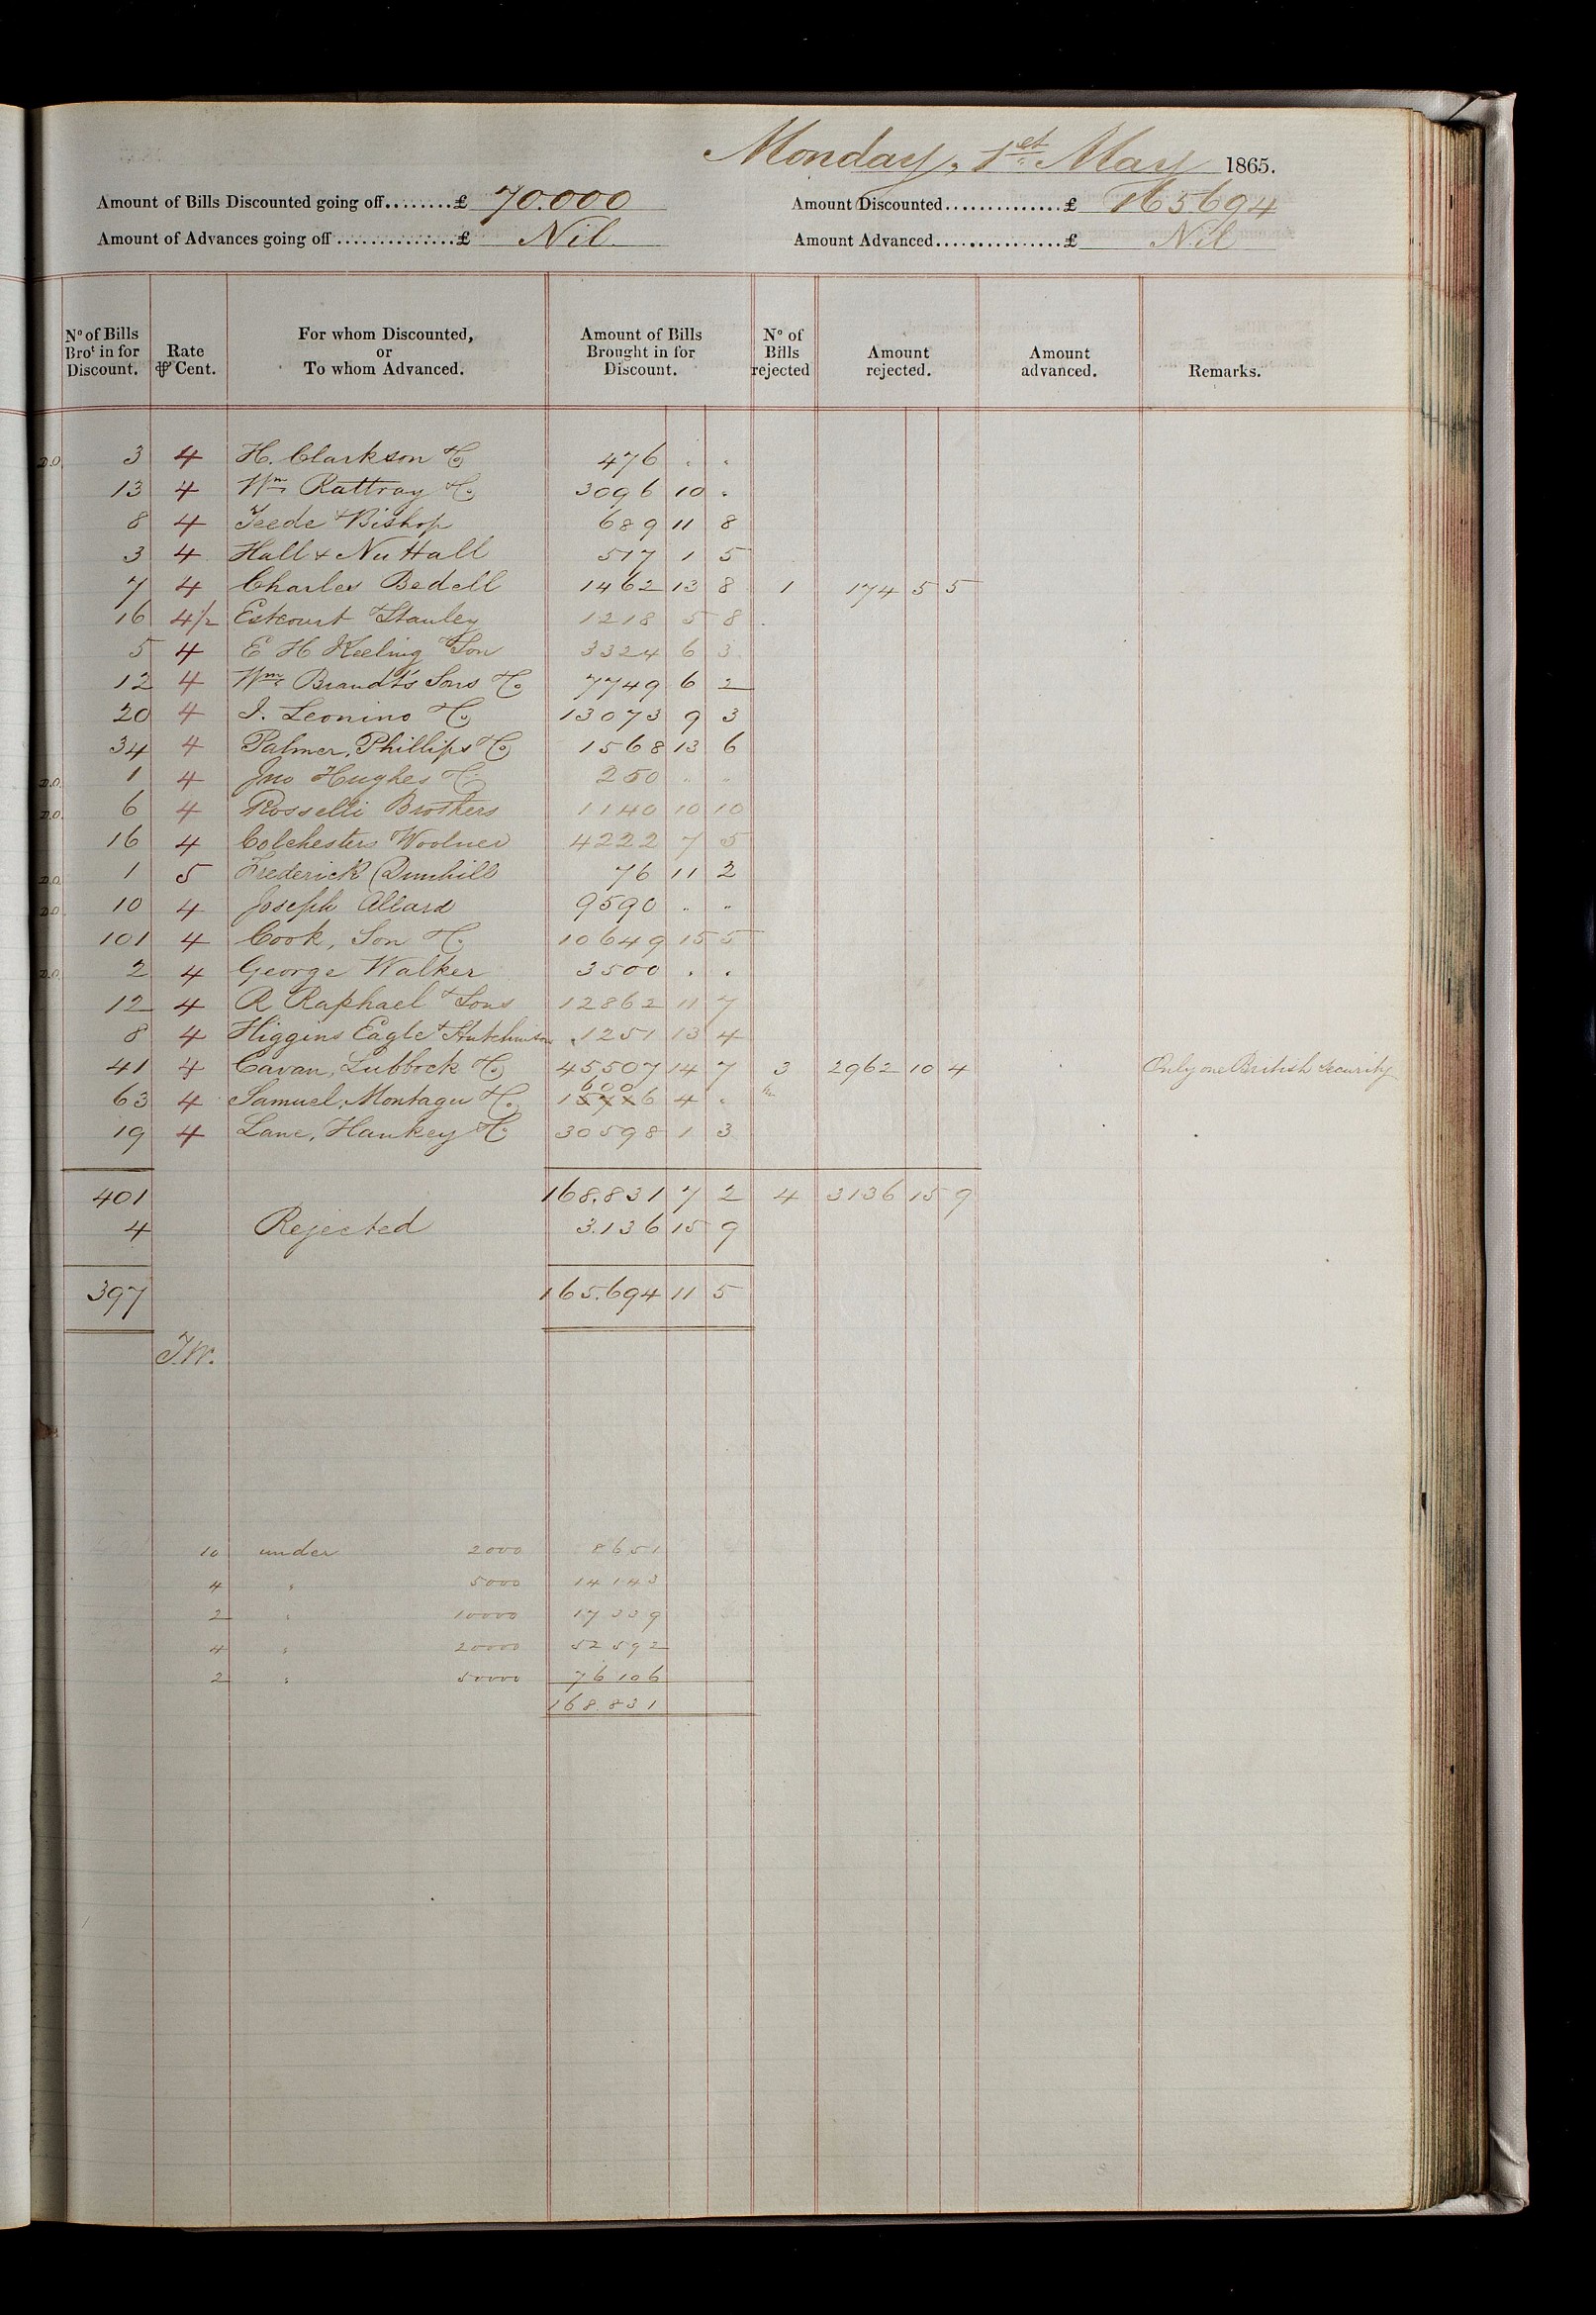 Monday, 1st May 1865.
Amount of Bills Discounted going off........£ 70.000 Amount Discounted..............£ 165694
Amount of Advances going off...............£ Nil Amount Advanced...............£ Nil
No of Bills Brot in for Discount. Rate ⅌ Cent. For whom Discounted, or To whom Advanced. Amount of Bills Brought in for Discount. No of Bills rejected Amount rejected. Amount advanced. Remarks.
D.O. 3 4 H. Clarkson & Co 476 . .
13 4 Wm Rattray & Co 3096 10 .
8 4 Teede & Bishop 689 11 8
3 4 Hall & Nuttall 517 1 5
7 4 Charles Bedell 1462 13 8 1 174 5 5
16 4½ Estcourt & Stanley 1218 5 8
5 4 E H Keeling & Son 3324 6 3
12 4 Wm Brandt's Sons & Co 7749 6 2
20 4 I. Leonino & Co 13073 9 3
34 4 Palmer, Phillips & Co 1568 13 6
D.O. 1 4 Jno Hughes & Co 250 " "
D.O. 6 4 Rosselli Brothers 1140 10 10
16 4 Colchesters & Woolner 4222 7 5
D.O. 1 5 Frederick Dunhill 76 11 2
D.O. 10 4 Joseph Allard 9590 " "
101 4 Cook, Son & Co 10649 15 5
D.O. 2 4 George Walker 3500 . .
12 4 R Raphael & Sons 12862 11 7
8 4 Higgins Eagle & Hutchinson 1251 13 4
41 4 Cavan, Lubbock & Co 45507 14 7 3 2962 10 4 Only one British Security
63 4 Samuel, Montagu & Co 16006 4 "
19 4 Lane, Hankey & Co 30598 1 3
401 168.831 7 2 4 3136 15 9
4 Rejected 3.136 15 9
397 165.694 11 5
T.W.
10 under 2000 8651
4 " 5000 14143
2 " 10000 17339
4 " 20000 52592
2 " 50000 76106
168.831